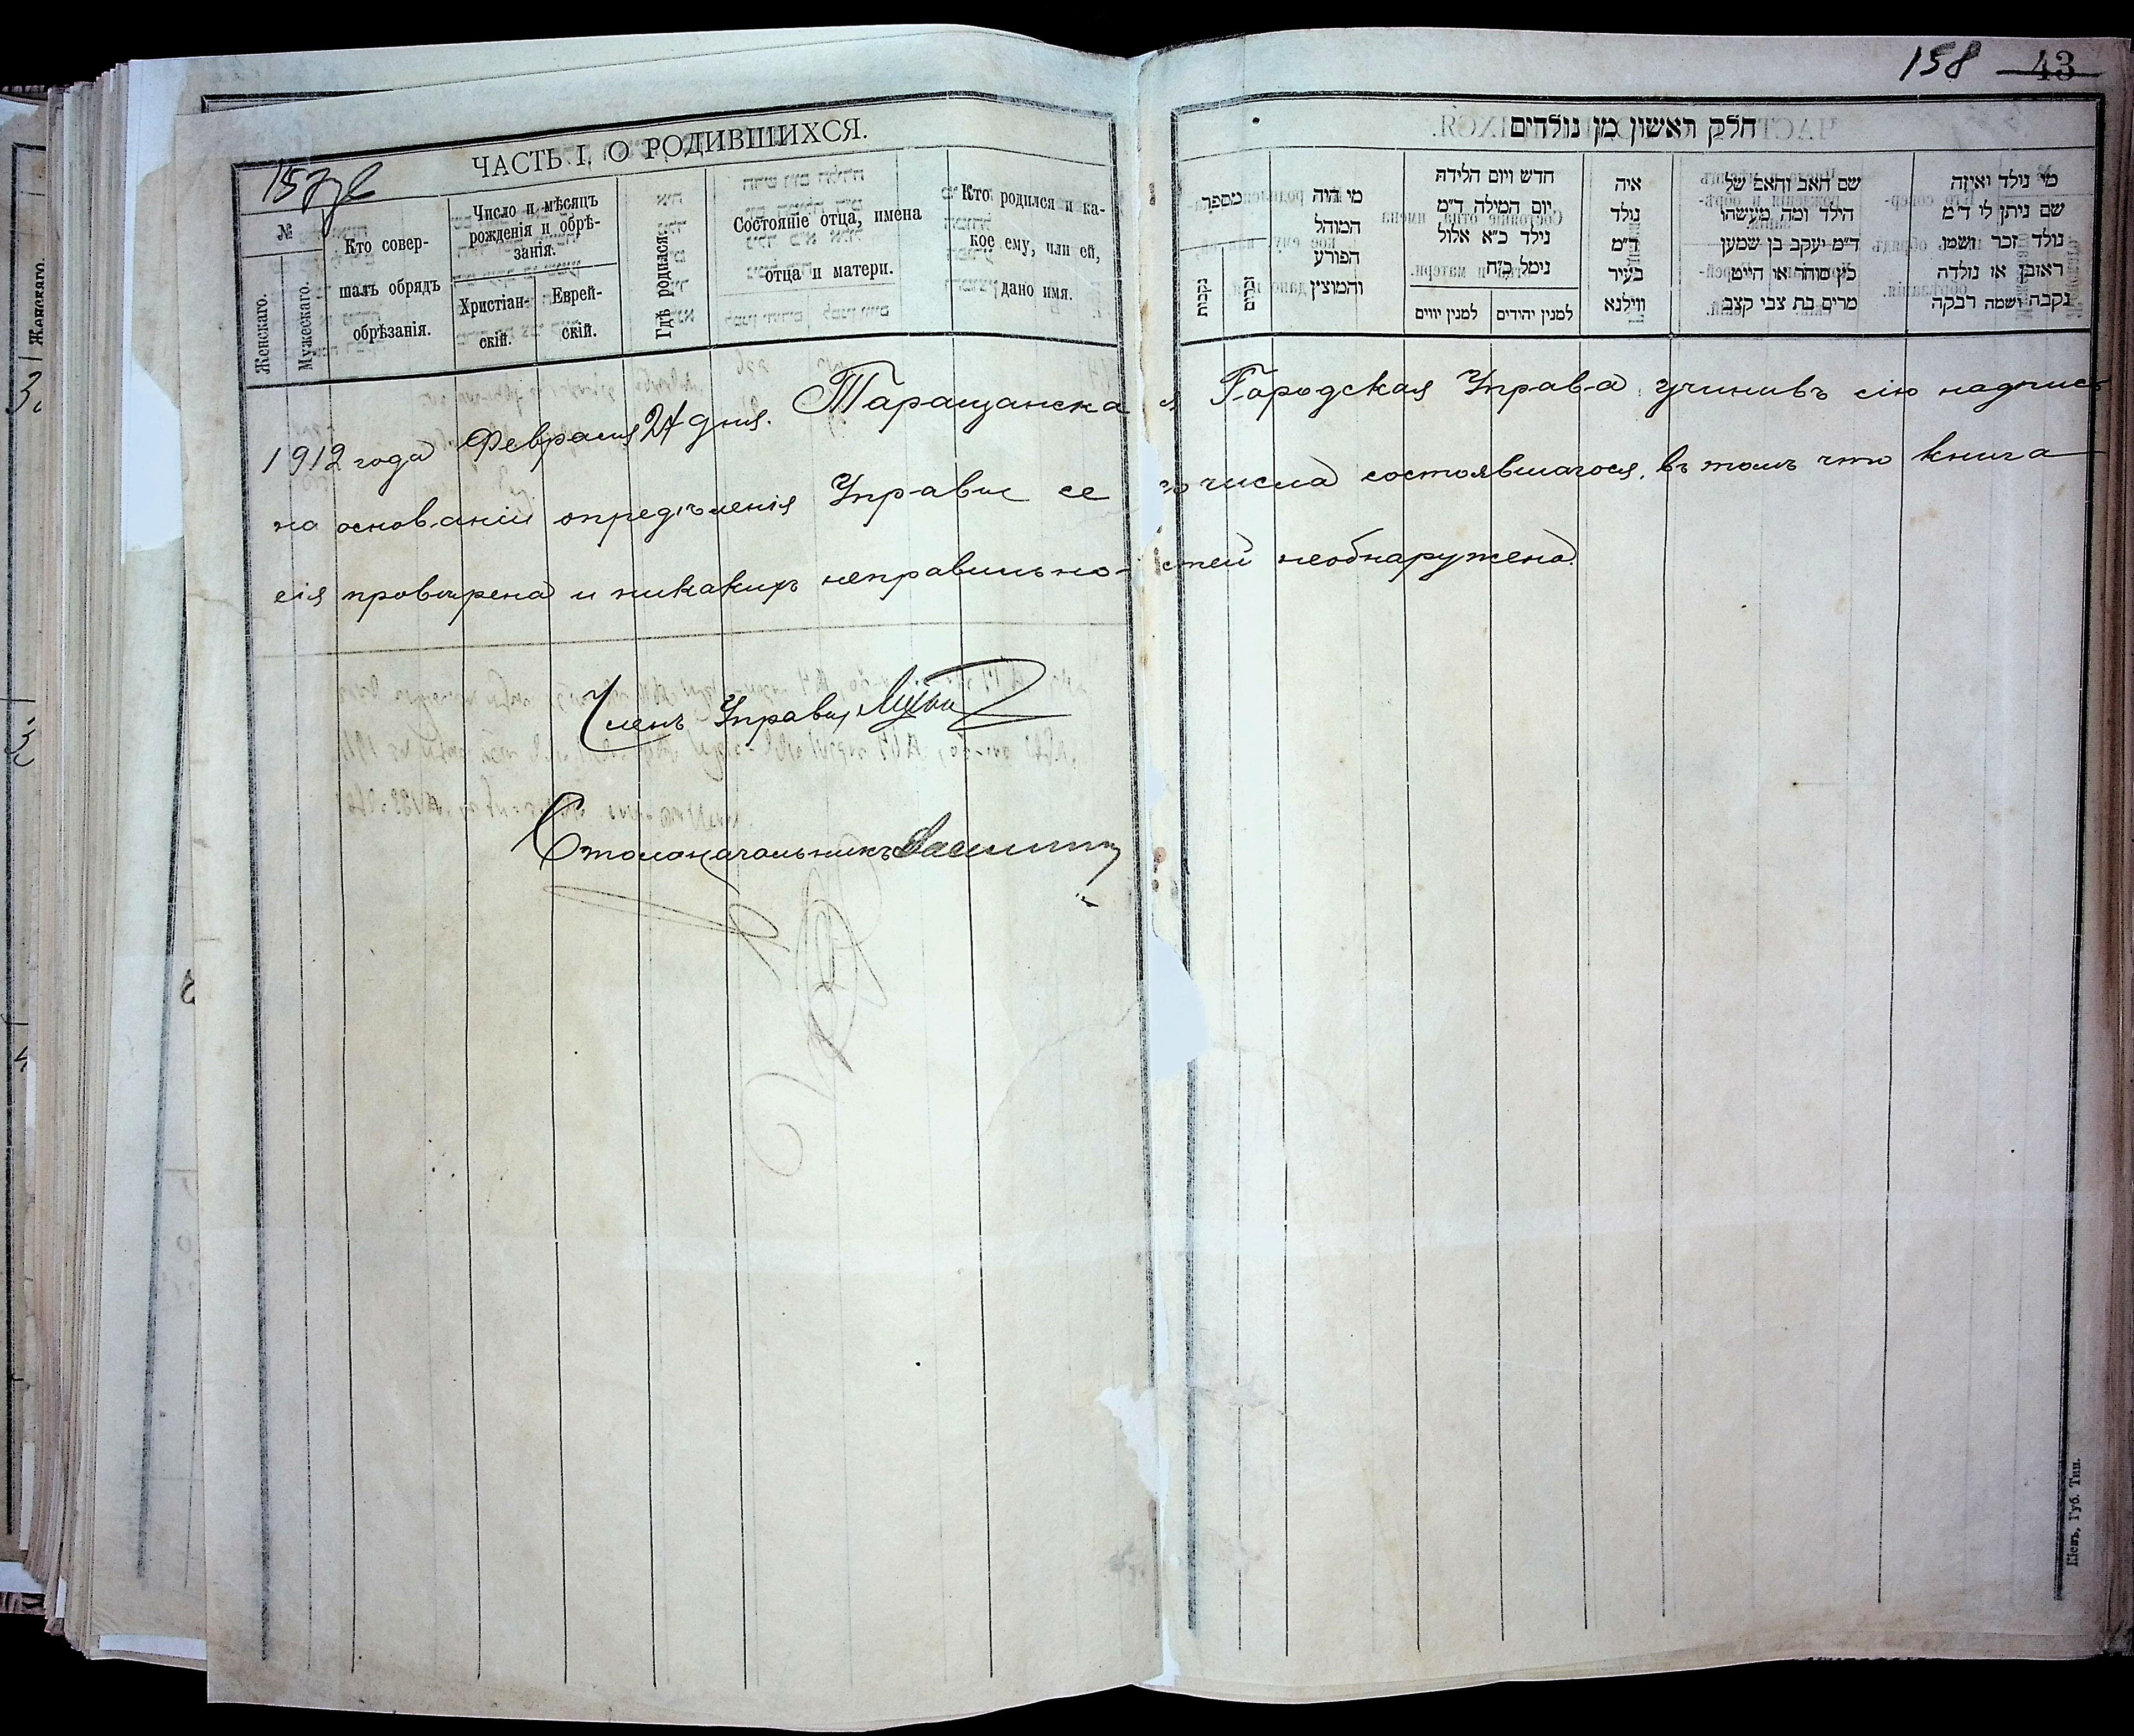 158 43
ЧАСТЬ I. О РОДИВШИХСЯ.
157
№
Женскаго.
Мужескаго.
Кто совер-
шалъ обрядъ
обрѣзанія.
Число и мѣсяцъ
рожденія и обрѣ-
занія.
Христіан-
скій.
Еврей-
скій.
Гдѣ родился.
Состояніе отца, имена
отца и матери.
Кто родился и ка-
кое ему, или ей,
дано имя.
חלק ראשון מן נולדים
מספר
נקבות
זכרים
מי היה
המוהל
הפורע
והמוצץ
חדש ויום הלידה
יום המילה ד״מ
נילד כ״א אלול
נימל כ״ח
למנין יווים
למנין יהודים
איה
נולד
ד״מ
בעיר
ווילנא
שם האב והאם של
הילד ומה מעשהו
ד״מ יעקב בן שמען
כץ סוחר או חייט
מרים בת צבי קצב
מי נילד ואיזה
שם ניתן לו ד״מ
נולד זכר ושמו
ראובן או נולדה
נקבה ושמה רבקה
1912 года Февраля 27 дня. Таращанская Городская Управа учинивъ сію надпись
на основаніи опредѣленія Управы сего числа состоявшагося, въ томъ что книга
сія провѣрена и никакихъ неправильностей необнаружено.
Членъ Управы
Столоначальникъ
Кіевъ, Губ. Тип.
Женскаго.